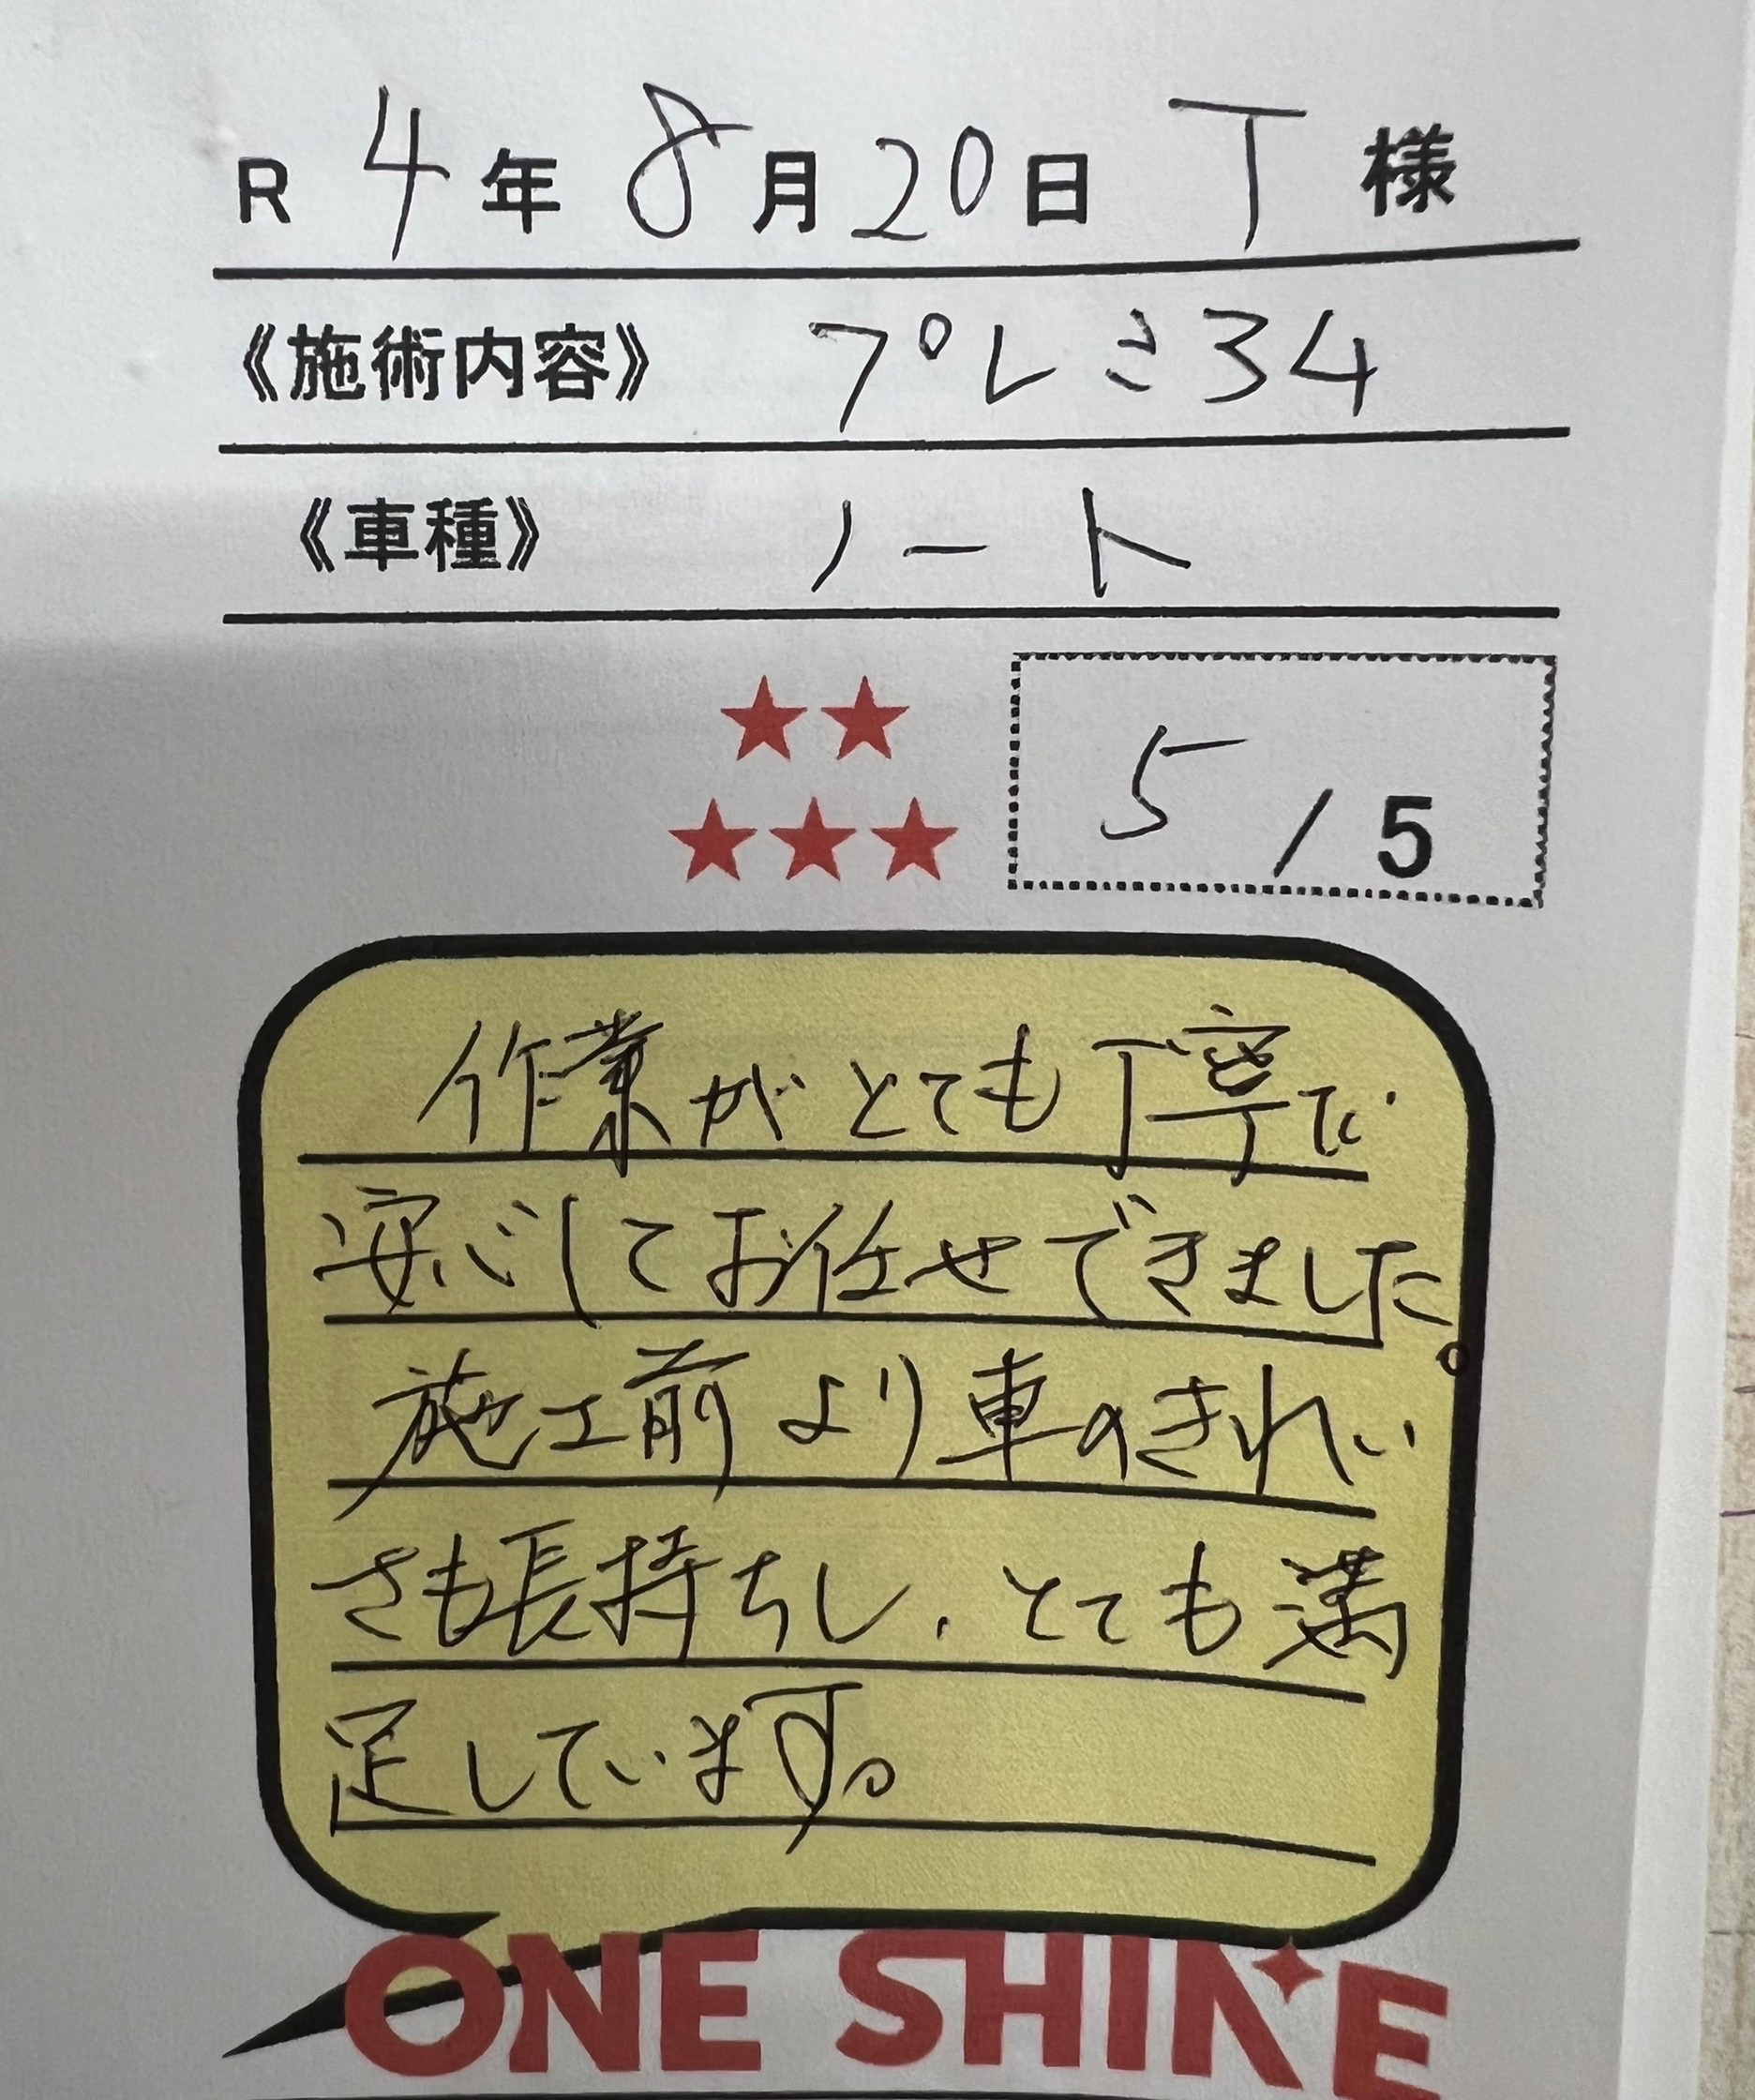 R 4年 8月20日 T 様
《施術内容》 プレミ34
《車種》 ノート
5 / 5
作業がとても丁寧で
安心してお任せできました。
施工前より車のきれい
さも長持ちし、とても満
足しています。
ONE SHINE